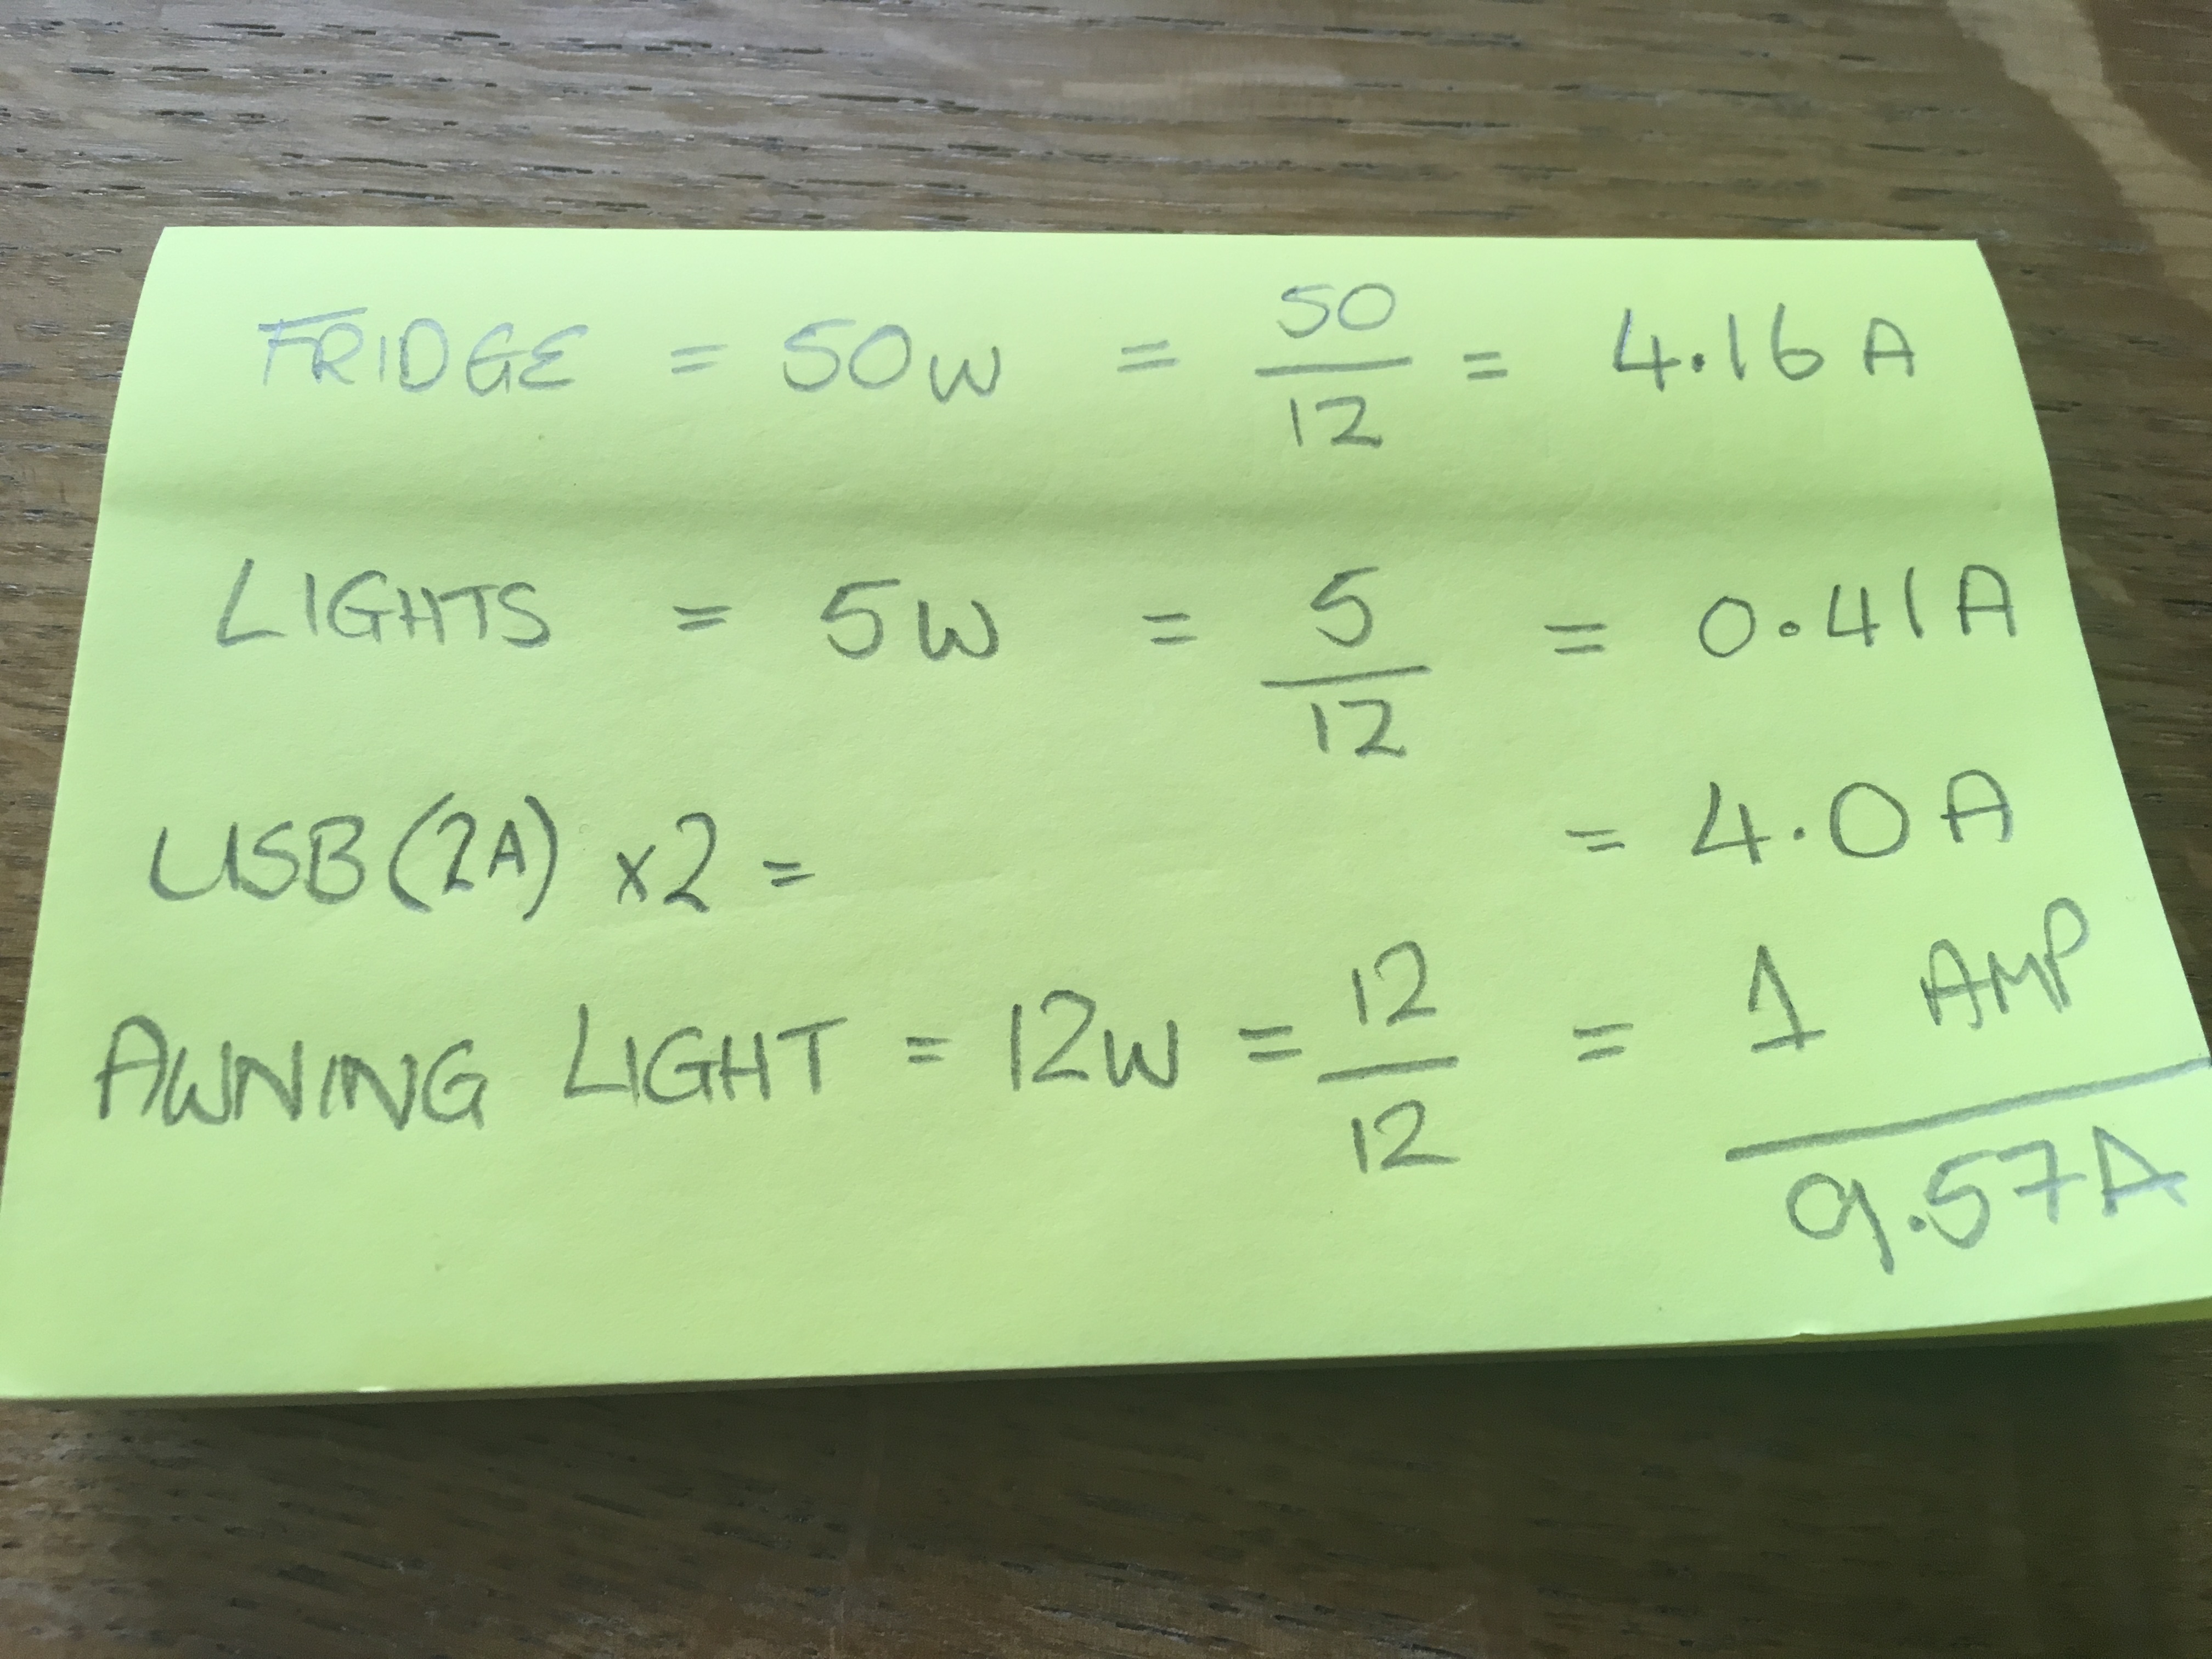 FRIDGE = 50W = 50/12 = 4.16 A
LIGHTS = 5W = 5/12 = 0.41A
USB (2A) x2 = = 4.0 A
AWNING LIGHT = 12W = 12/12 = 1 AMP
9.57A